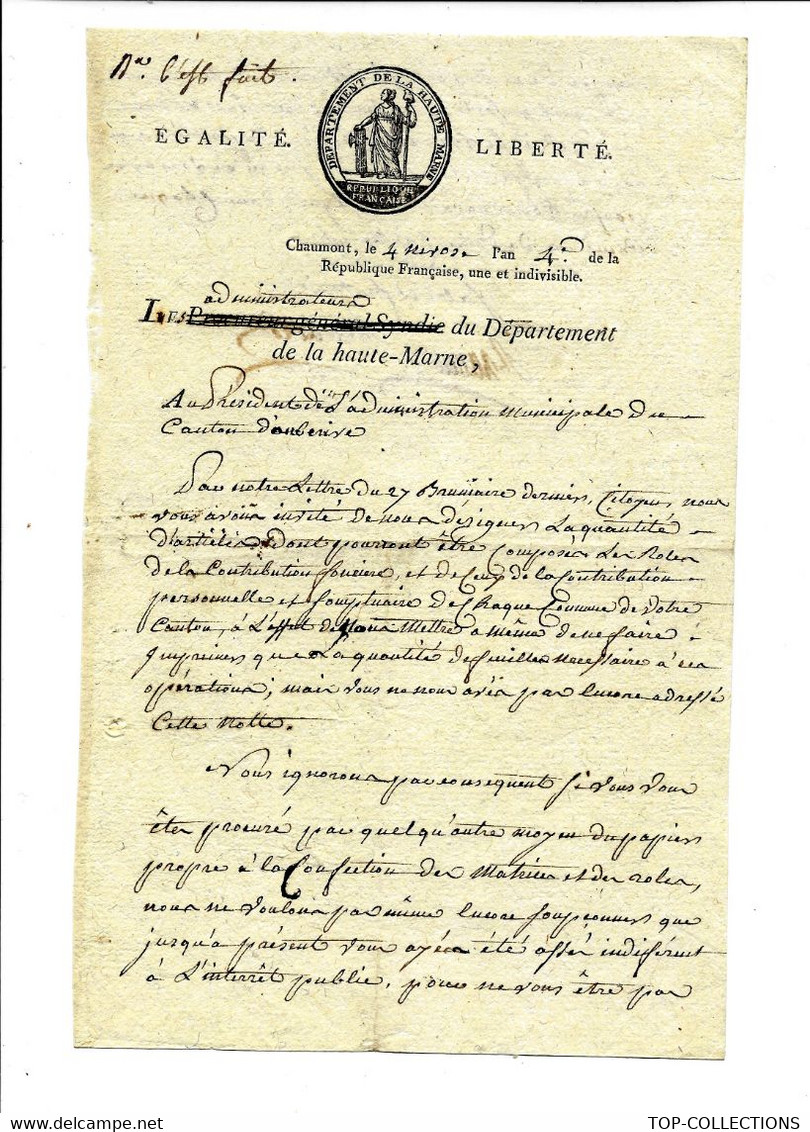 Nta. C'est fait.
DEPARTEMENT DE LA HAUTE MARNE
EGALITÉ. LIBERTÉ.
REPUBLIQUE
FRANÇAISE
Chaumont, le 4 nivose l'an 4e. de la
République Française, une et indivisible.
administrateurs
Les Procureur général Syndic du Département
de la haute-Marne,
Au Président de L'administration Municipale du
Canton d'auberive
Par notre Lettre du 27 Brumaire dernier, Citoyen, nous
vous avons invité de nous désigner La quantité
d'articles dont pourront être Composés Les Roles
de la Contribution fonciere, et de Ceux de la Contribution
personnelle et somptuaire de Chaque Commune de Votre
Canton, à L'effet de Nous Mettre à même de ne faire
Imprimer que La quantité de feuilles necessaire à ces
opérations; mais vous ne nous avés pas Encore adressé
Cette notte.
Nous ignorons par consequent si vous vous
êtes procuré par quelqu'autre moyen du papier
propre à la Confection des Matrices et des roles,
nous ne voulons pas même Encore soupçonner que
jusqu'à présent vous ayéz été assés indifférent
à L'interrêt public, pour ne vous être pas
TOP-COLLECTIONS